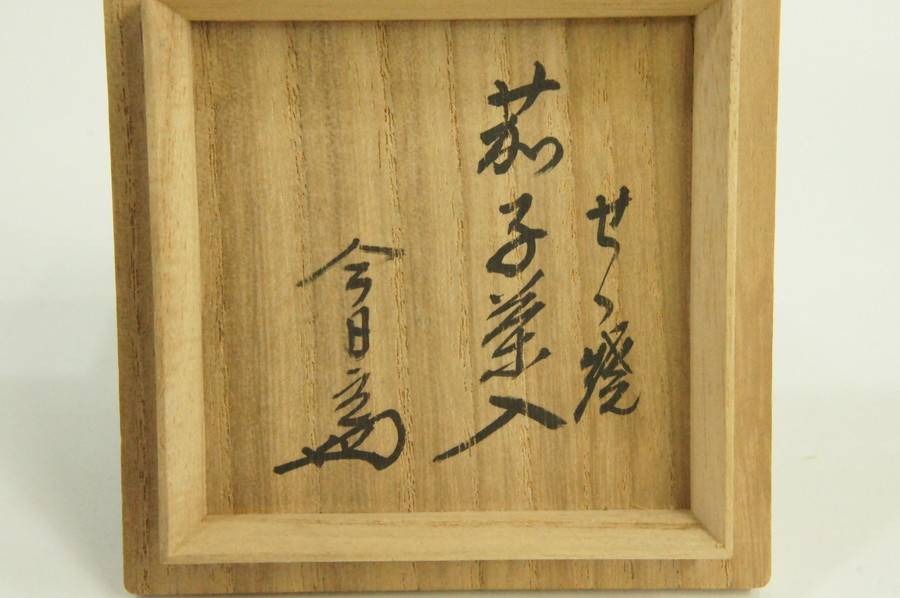 せゝ燒
茄子茶入
今日庵